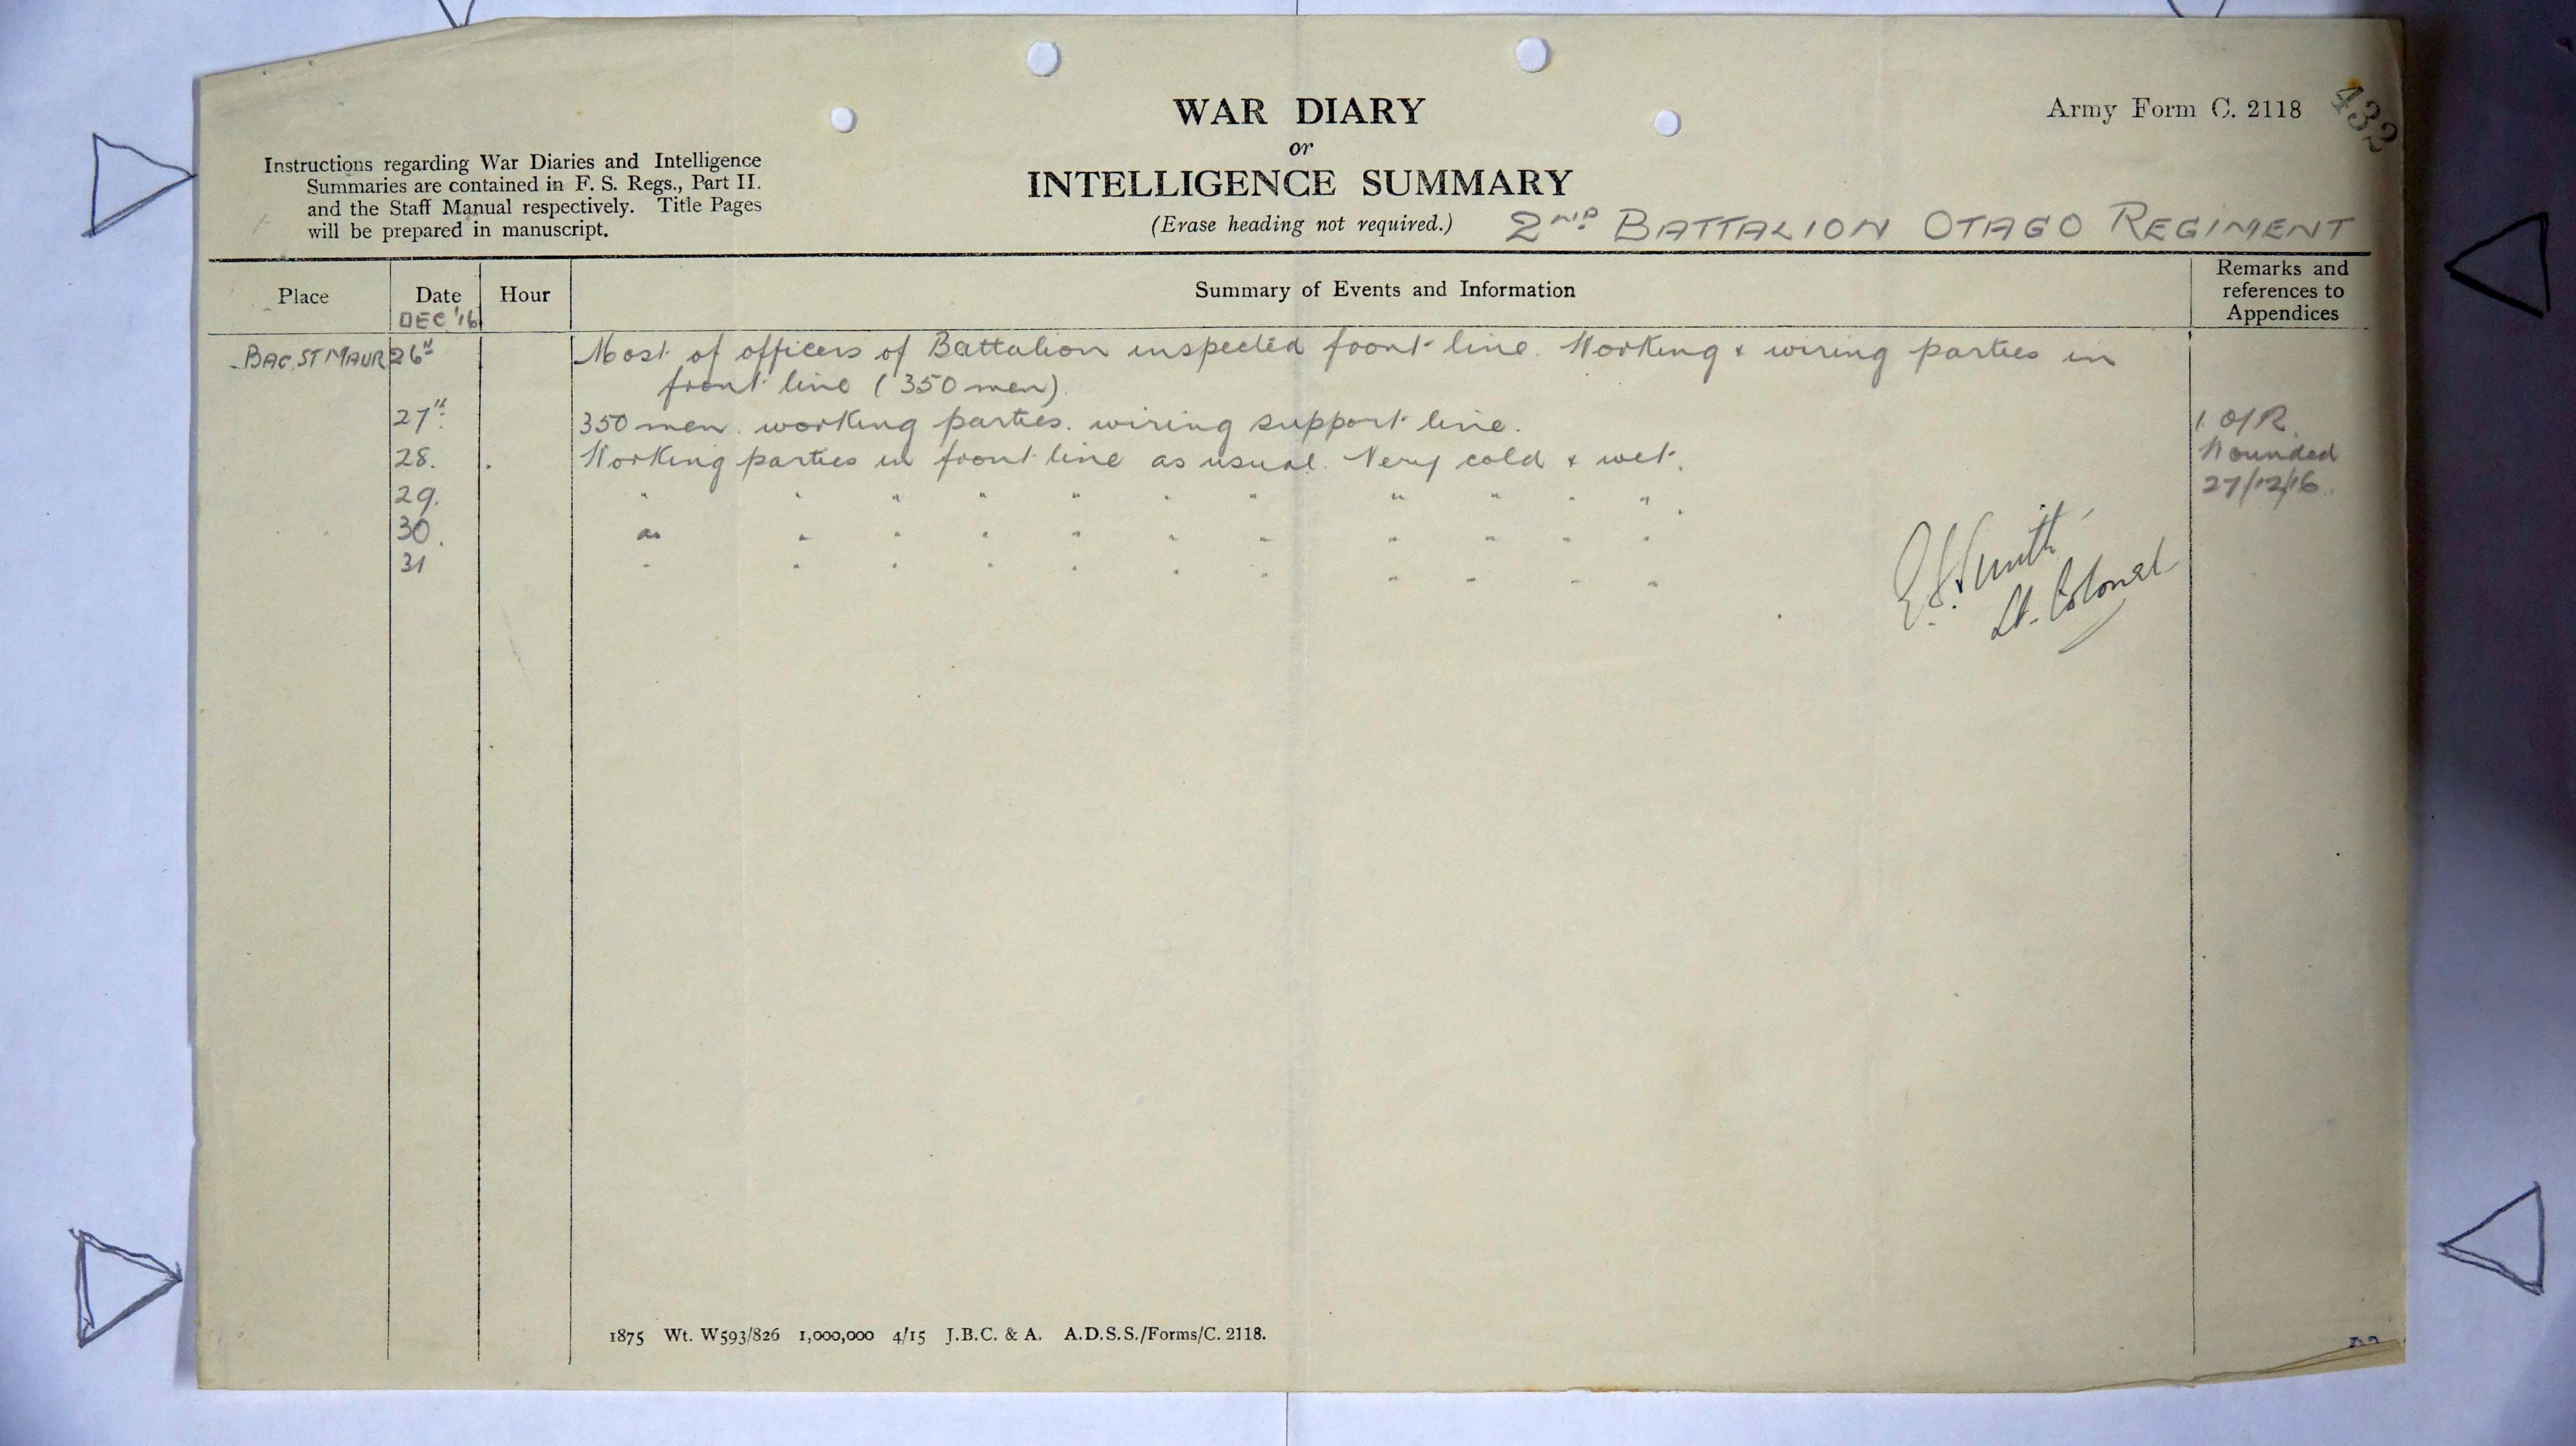 WAR DIARY
or
INTELLIGENCE SUMMARY
(Erase heading not required.)
Army Form C. 2118
432
Instructions regarding War Diaries and Intelligence
Summaries are contained in F. S. Regs., Part II.
and the Staff Manual respectively. Title Pages
will be prepared in manuscript.
2ND BATTALION OTAGO REGIMENT
Place
Date
DEC '16
Hour
Summary of Events and Information
Remarks and
references to
Appendices
BAC ST MAUR 26th Most of officers of Battalion inspected front line. Working & wiring parties in
front line (350 men).
27th 350 men working parties. wiring support line. 1 O/R
28. Working parties in front line as usual. Very cold & wet. Wounded
29. " " " " " " " " " " " 27/12/16.
30. " " " " " " " " " " "
31 " " " " " " " " " " "
Smith
Lt. Colonel
1875 Wt. W593/826 1,000,000 4/15 J.B.C. & A. A.D.S.S./Forms/C. 2118.